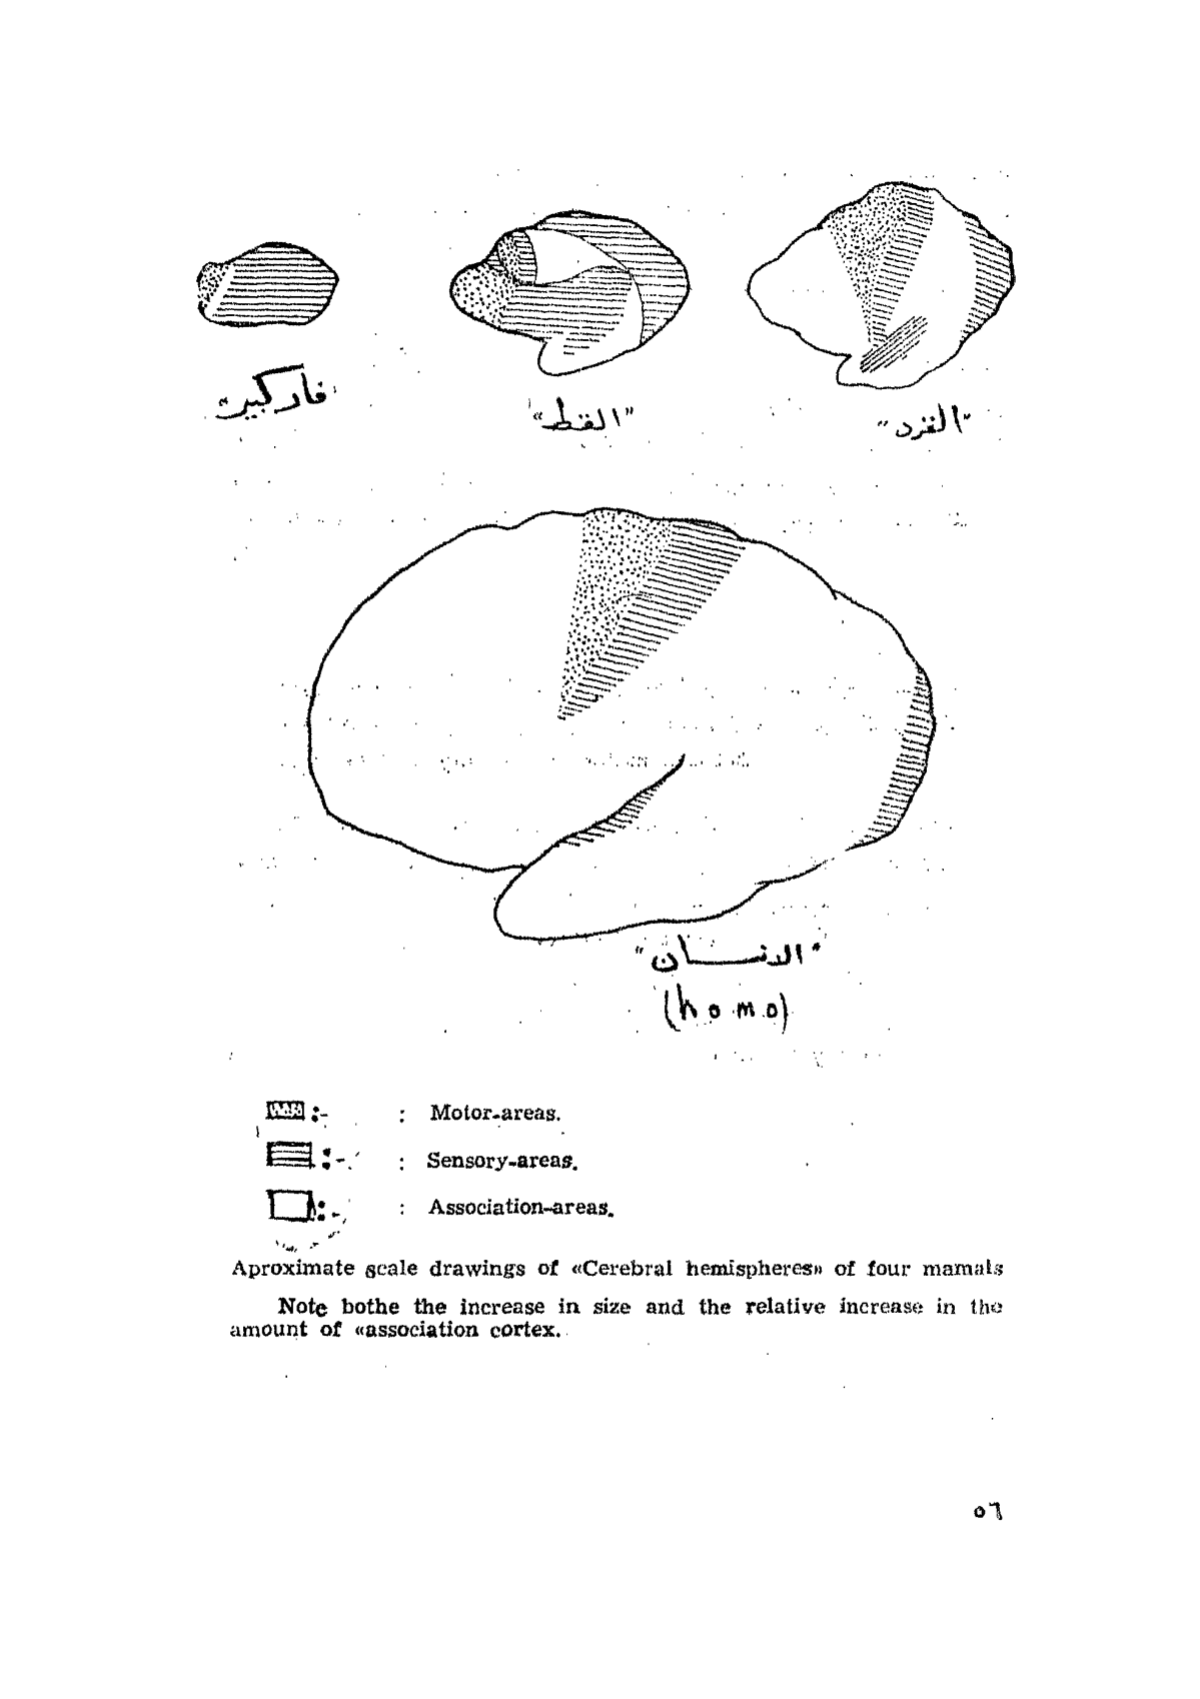 فار كبير"
"القط"
"القرد"
"الانسان"
(homo)
:- : Motor-areas.
:- : Sensory-areas.
:- : Association-areas.
Aproximate scale drawings of «Cerebral hemispheres» of four mamals
Note bothe the increase in size and the relative increase in the
amount of «association cortex.
٥٦